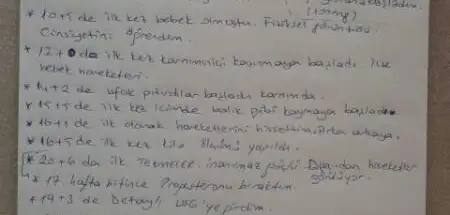 başladım.
(10mg)
* 10+5 de ilk kez bebek olmuştu. Fiziksel görüntüsü
Cinsiyetini öğrendim.
* 12+0 da ilk kez karnımıniçi kaynamaya başladı ilk
bebek hareketleri.
* 14+2 de ufak pıtırdılar başladı karnımda.
* 15+5 de ilk kez icimde balık gibi kaymaya başladı
* 16+1 de ilk olarak hareketlerini hissettim Arka arkaya.
* 16+5 de ilk kez ikili yapıldı.
* 20+6 da ilk Tekmeler. inanılmaz güçlü Dışarıdan hareketler
görülüyor.
* 17. hafta bitince Progesteronu bıraktım.
* 19+3 de Detaylı USG'ye girdim.